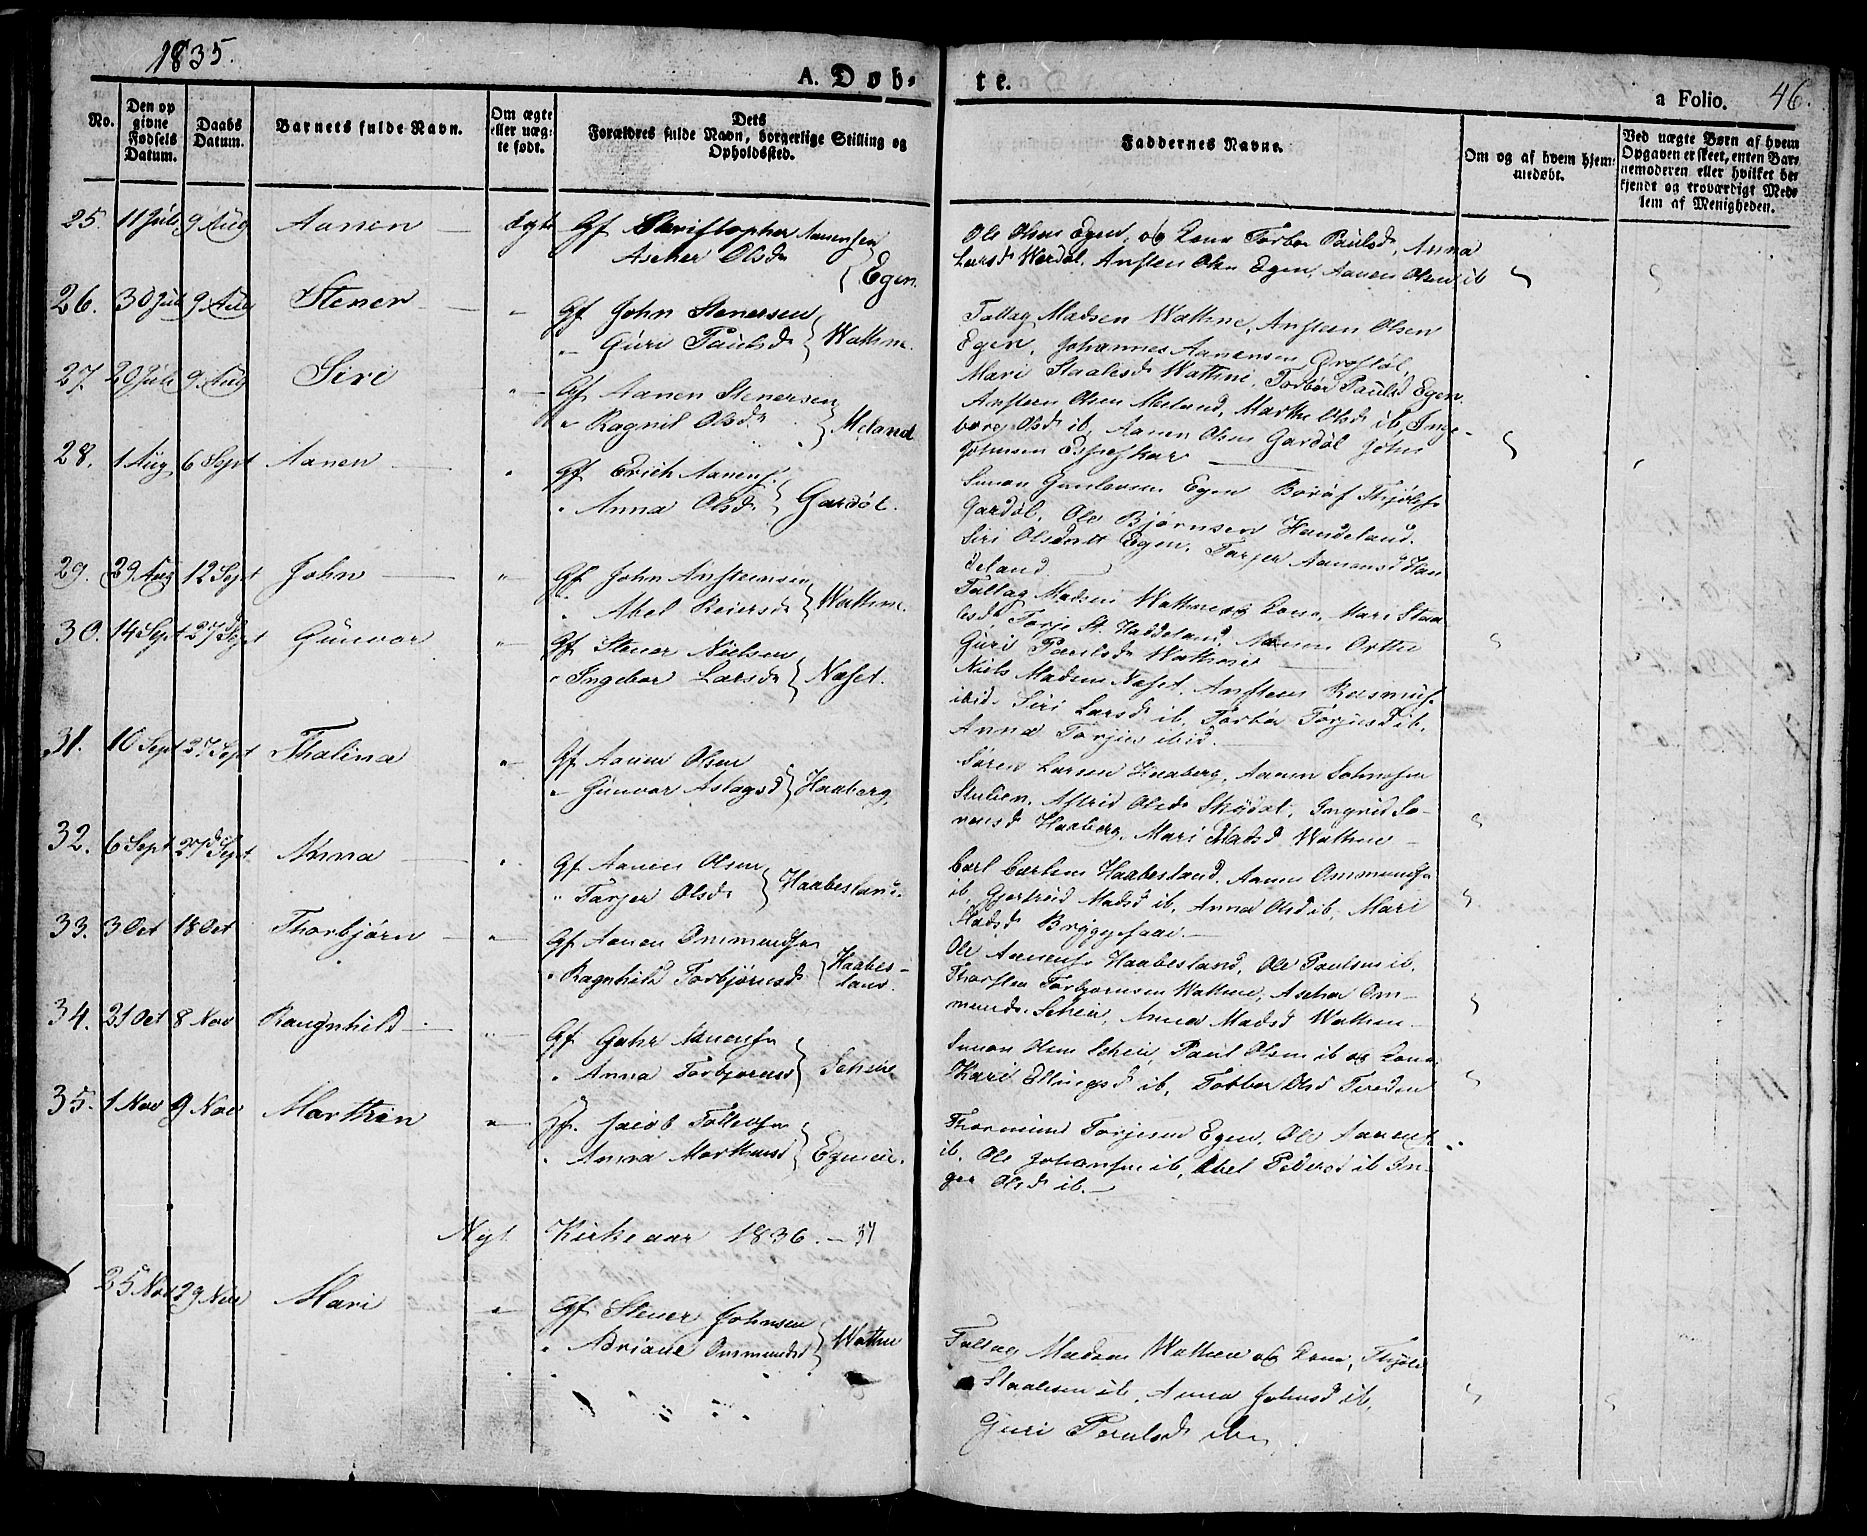 1835.
A. Døb-
te.
a Folio. 46.
No.
Den op
givne
Fødsels
Datum.
Daabs
Datum.
Barnets fulde Navn.
Om ægte
eller uæg-
te født.
Dets
Forældres fulde Navn, borgerlige Stilling og
Opholdssted.
Faddernes Navne.
Om og af hvem hjem-
medøbt.
Ved uægte Børn af hvem
Opgaven er skeet, enten Bar-
nemoderen eller hvilket be-
kjendt og troværdigt Med-
lem af Menigheden.
25. 11 Juli 9 Aug Aanen — ægte Gf Christopher Aanensen
Ascher Olsd Egen
Ole Olsen Egen, og Kone Torbor Paulsd, Anna
Larsd Werdal, Ansten Olsn Egen, Aanen Olsen ib
26. 30 Juli 9 Aug Stener — " Gf John Stenersen
" Guri Paulsd Wathne.
Tallag Madsen Wathne, Ansten Olsen
Egen, Johannes Aanensen
Mari Staalesd Wathne, Torbor Paulsd Egen.
27. 20 Juli 9 Aug Siri " Gf Aanen Stenersen
" Ragnil Olsd Meland
Ansten Olsen Meland, Marthe Olsd ib, Inge-
borg Olsd ib, Aanen Olsen Gardøl John
Johnsen
28. 1 Aug 6 Sept Aanen — " Gf Erich Aanens.
" Anna Olsd Gardøl.
Simon Gunlevsen Egen
Gardøl, Ole Bjørnsen Handeland.
Siri Olsdatt Egen, Torjer Aanensd Han
deland.
29. 29 Aug 12 Sept John — " Gf John Anstensen
" Abel Reiersd Wathne.
Tallag Madsen Wathne og Kone, Mari Staa
lesd Torje St. Haddeland,
Guri Paulsd Wathne
30. 14 Sept 27d Sept Gunvor " Gf Stener Nielsen
" Ingebor Larsd Naset.
Niels Madsen Naset, Ansten Rasmus.
ibid. Siri Larsd ib, Torbor Torjusd ib.
Anna Torjus ibid. —
31. 10 Sept 27 Sept Thalina " Gf Aanen Olsen
" Gunvor Aslagsd Haaberg.
Søren Larsen Haaberg, Aanen
Astrid Olsd Ingrid So-
rensd Haaberg, Mari Madsd Wathne —
32. 6 Sept 27d Sept. Anna — " Gf Aanen Olsen
" Torjer Olsd Haabesland.
Carl Carlsen Haabesland, Aanen Ommundsn
ib, Gjertrud Madsd ib, Anna Olsd ib, Mari
Madsd
33. 3 Oct 18 Oct Thorbjørn — " Gf Aanen Ommundsn
" Ragnhild Torbjørnsd Haabes-
land.
Ole Aanensn Haabesland, Ole Paulsen ib,
Thorsten Torbjørnsen Wathne, Ascher Om-
munds. Scheie, Anna Madsd Wathne —
34. 21 Oct 8 Nov Raugnhild — " Gf Gahr Aanensn
" Anna Torbjørnsd Scheie
Simon Olsen Scheie, Paul Olsen ib og Kone
Kari Ellingsd ib, Torbor Olsd Tveden
35. 1 Nov 9 Nov Marthin " Gf. Jacob Tollevsn
" Anna Marthinsd Egeneie.
Thormund Torjesen Egen, Ole Aanens.
ib, Ole Johansen ib, Abel Pedersd ib In-
ger Olsd ib. —
Nyt Kirkeaar 1836. — 37
1 25 Nov 29 Nov Mari " Gf Stener Johnsen
" Adriane Ommundsd Wathne
Tallag Madsen Wathne og Kone,
Staalesen ib, Anna Johnsd ib,
Guri Paulsd